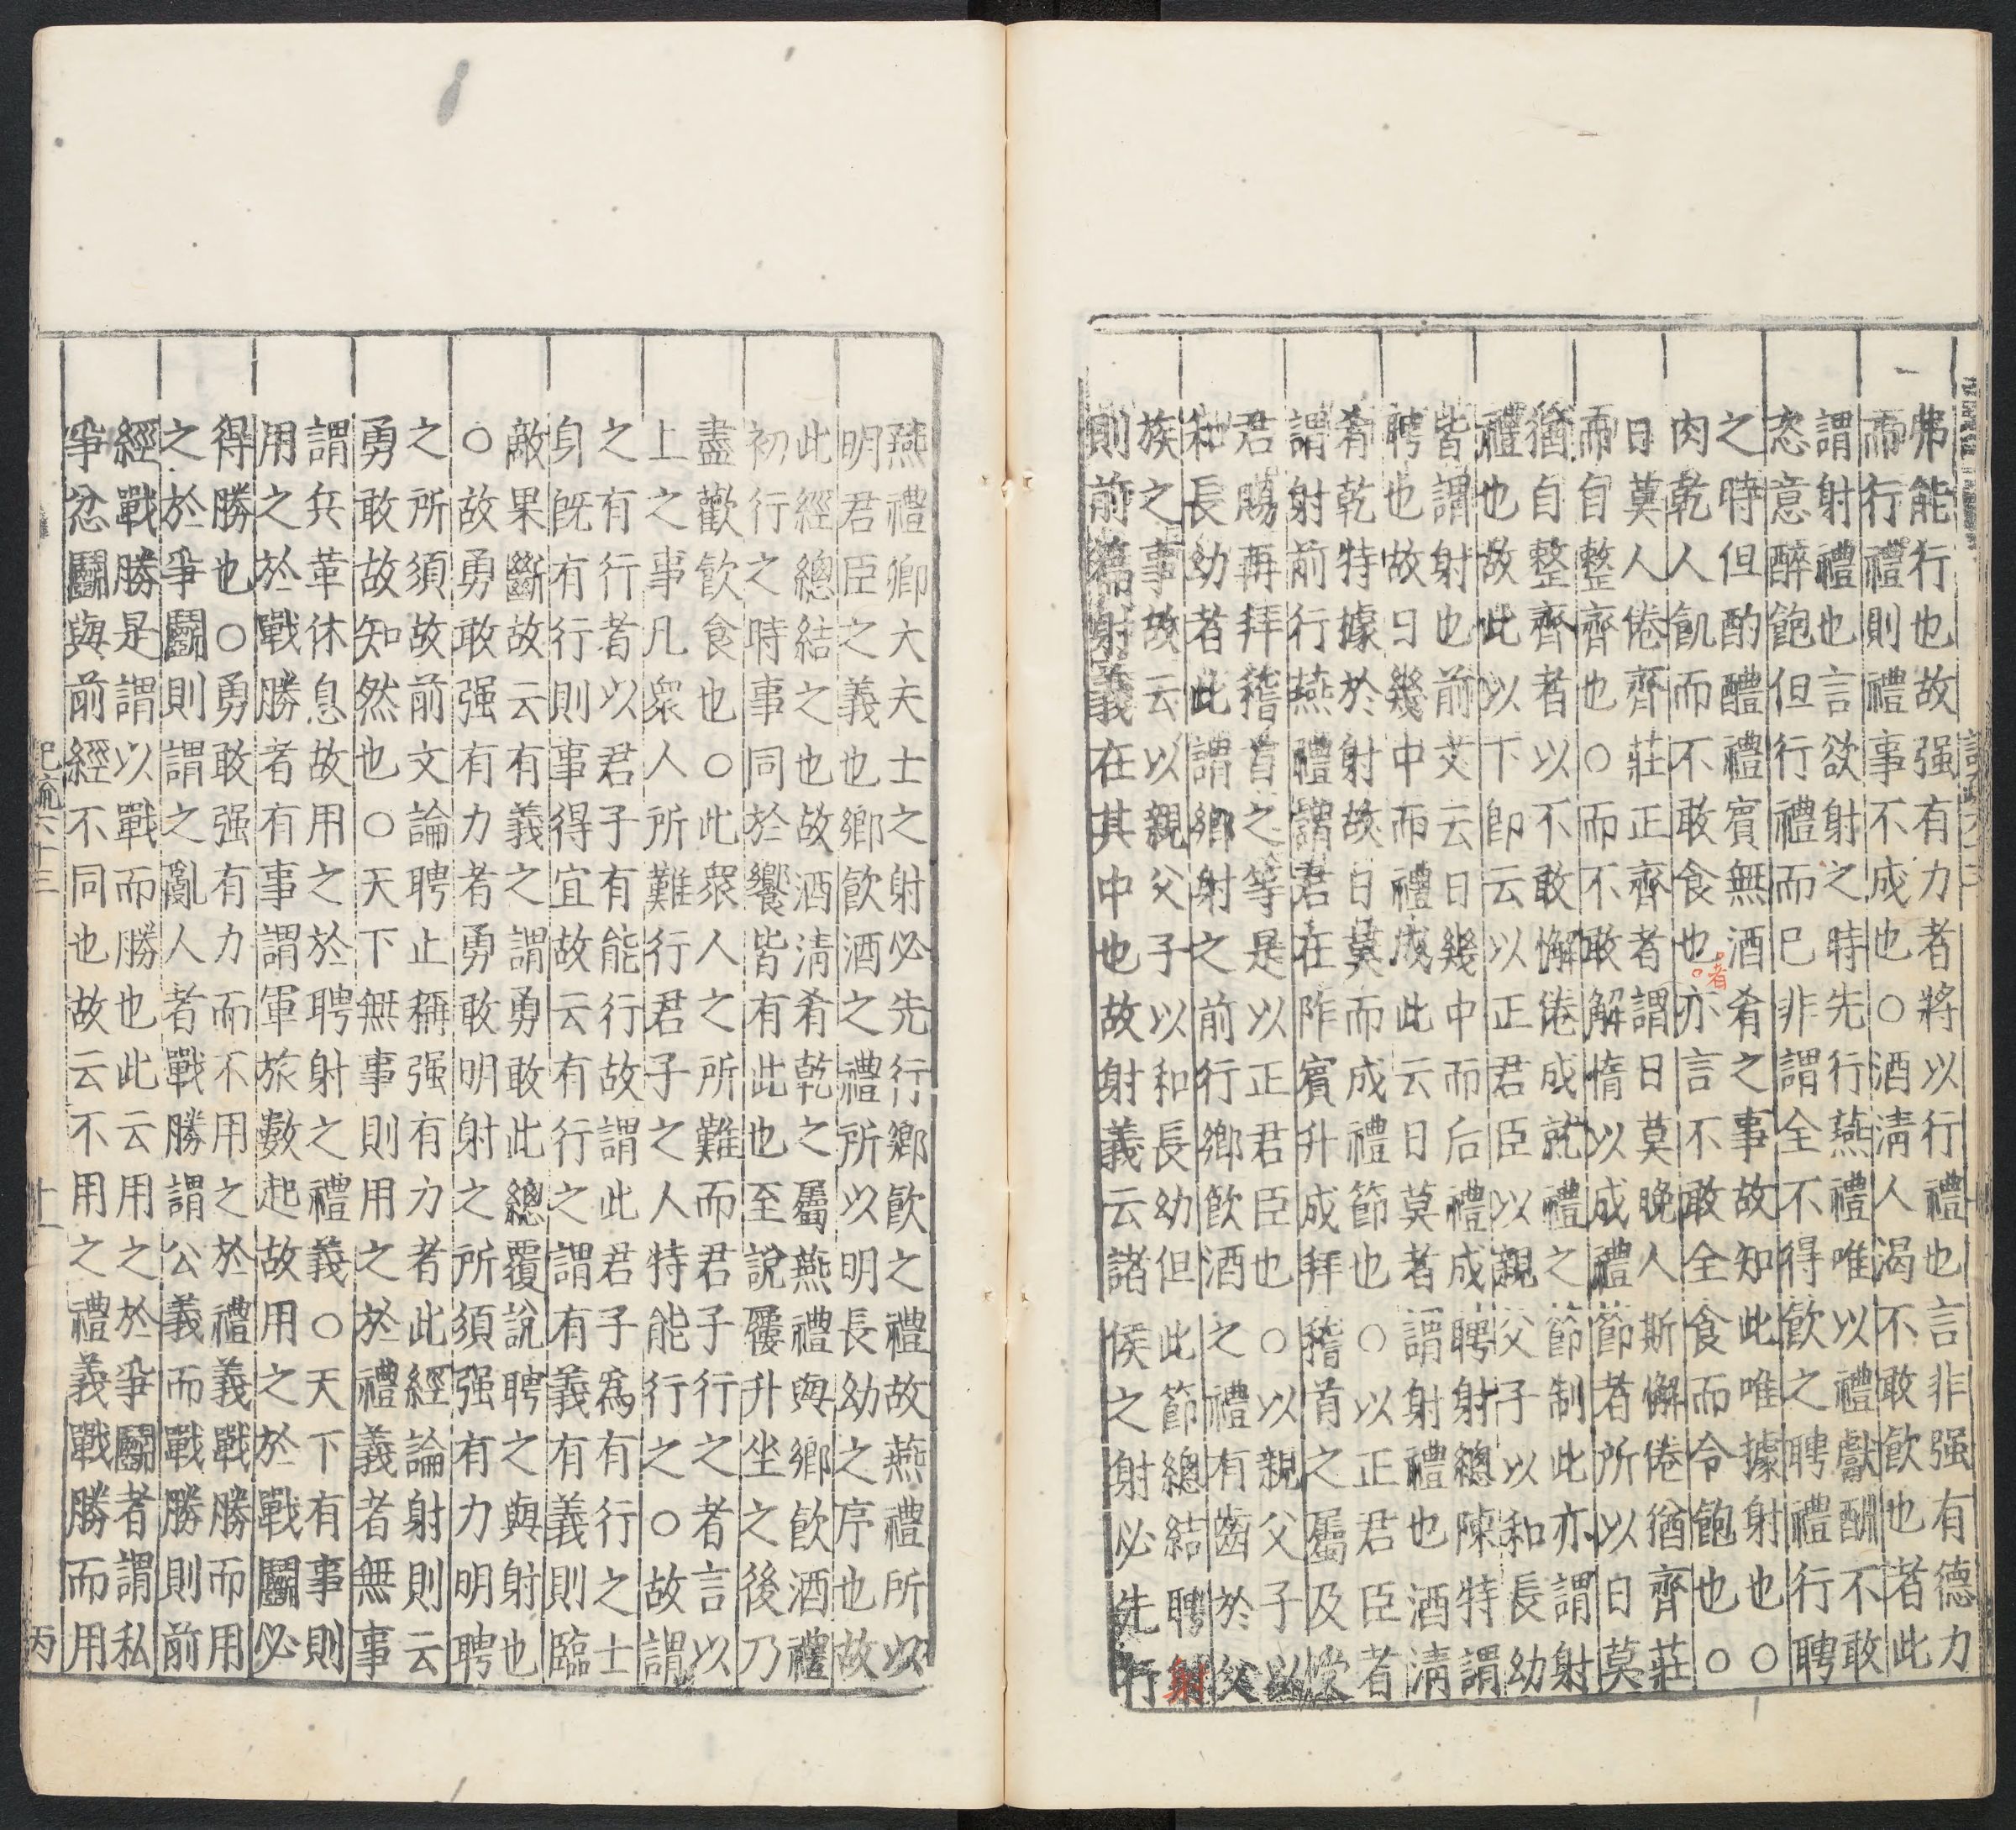 弗能行也故强有力者將以行禮也言非强有德力
而行禮則禮事不成也○酒清人渴不敢飲也者此
謂射禮也言欲射之時先行燕禮唯以禮獻酬不敢
恣意醉飽但行禮而巳非謂全不得飲之聘禮行聘
之時但酌醴禮賓無酒肴之事故知此唯據射也○
肉乾人飢而不敢食也者亦言不敢全食而令飽也○
日莫人倦齊莊正齊者謂日莫晚人斯懈倦猶齊莊
而自整齊也○而不敢解惰以成禮節者所以日莫
猶自整齊者以不敢懈倦成就禮之節制此亦謂射
禮也故此以下即云以正君臣以親父子以和長幼
皆謂射也前文云日幾中而后禮成聘射緫陳特謂
聘也故日幾中而禮成此云日莫者謂射射禮也酒清
肴乾特據於射故日莫而成禮節也○以正君臣者
謂射前行燕禮謂君在阼賓升成拜稽首之屬及受
君賜再拜稽首之等是以正君臣也○以親父子以
和長幼者此謂鄉射之前行鄉飲酒之禮有齒於父
族之事故云以親父子以和長幼但此節緫結聘射
則前篇射義在其中也故射義云諸侯之射必先行
燕禮卿大夫士之射必先行鄉飲之禮故燕禮所以
明君臣之義也鄉飲酒之禮所以明長幼之序也故
此經緫結之也故酒清肴乾之屬燕禮與鄉飲酒禮
初行之時事同於饗皆有此也至說屨升坐之後乃
盡歡飲食也○此衆人之所難而君子行之者言以
上之事凡衆人所難行君子之人特能行之○故謂
之有行者以君子有能行故謂此君子爲有行之士
身旣有行則事得宜故云有行之謂有義有義則臨
敵果斷故云有義之謂勇敢此緫覆說聘之與射也
○故勇敢强有力者勇敢明射之所須强有力明聘
之所須故前文論聘止稱强有力者此經論射則云
勇敢故知然也○天下無事則用之於禮義者無事
謂兵革休息故用之於聘射之禮義○天下有事則
用之於戰勝者有事謂軍旅數起故用之於戰鬭必
得勝也○勇敢强有力而不用之於禮義戰勝而用
之於爭鬭則謂之亂人者戰勝謂公義而戰勝則前
經戰勝是謂以戰而勝也此云用之於爭鬭者謂私
爭忿鬭與前經不同也故云不用之禮義戰勝而用
記疏六十三
十一
丙